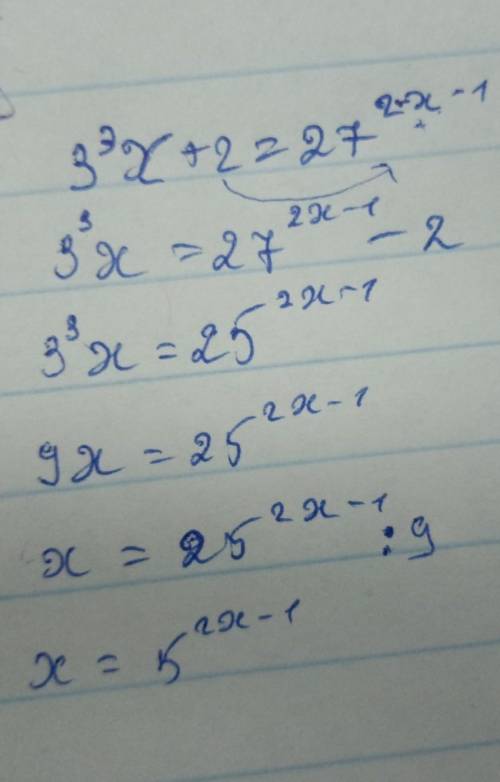 3³x + 2 = 27^{2x-1}
3³x = 27^{2x-1} - 2
3³x = 25^{2x-1}
9x = 25^{2x-1}
x = 25^{2x-1} : 9
x = 5^{2x-1}